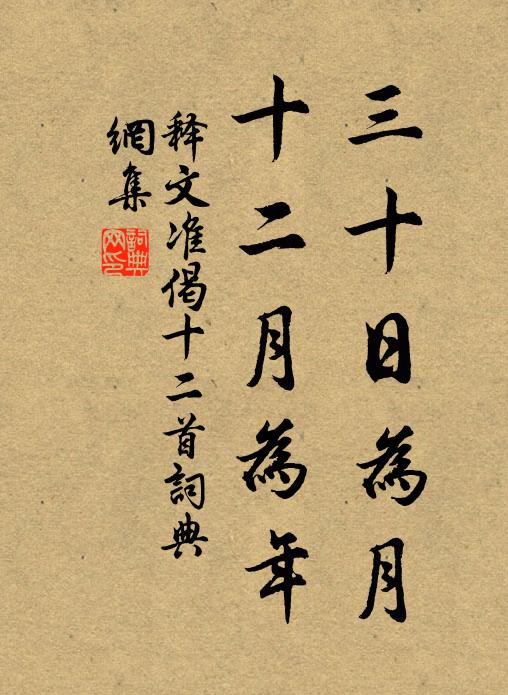 三十日為月
十二月為年
释文准偈十二首詞典
網集
詞典
网印